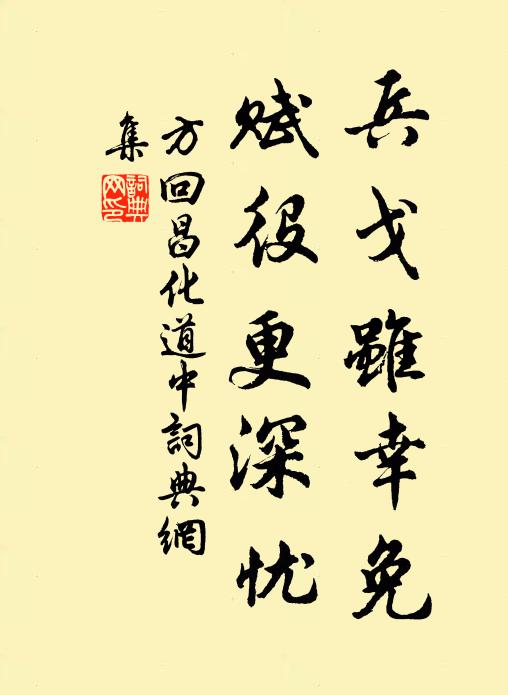 兵戈雖幸免
赋役更深忧
方回昌化道中詞典網
集
詞典
网印